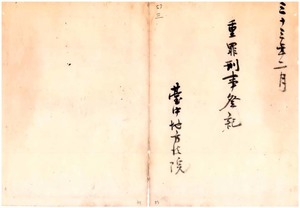 三十三年二月
重罪刑事登記
臺中地方法院